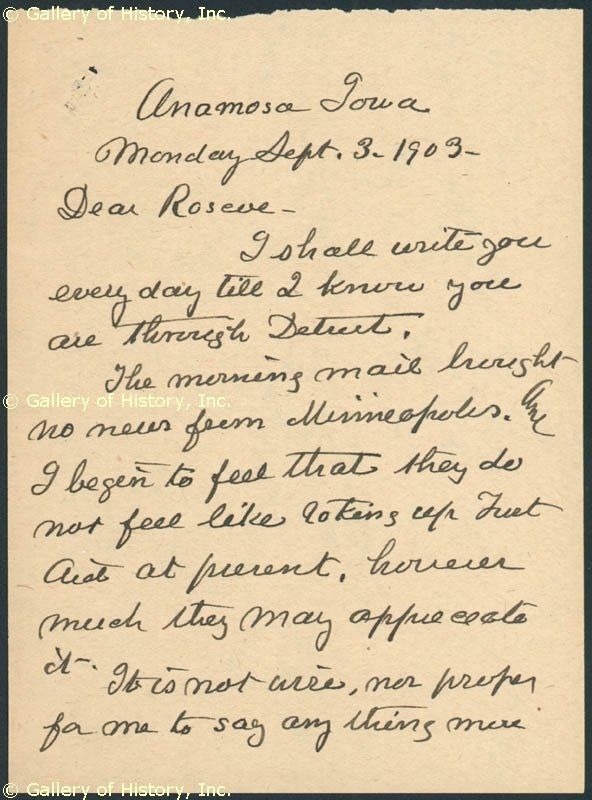 © Gallery of History, Inc.
© Gallery of History, Inc.
Anamosa Iowa
Monday Sept. 3. 1903-
Dear Roscoe-
I shall write you
every day till I know you
are through Detroit.
The morning mail brought
© Gallery of History, Inc.
no news from Minneapolis. And
I begin to feel that they do
not feel like taking up First
Aid at present, however
much they may appreciate
it.
It is not wise, nor proper
for me to say any thing more
© Gallery of History, Inc.